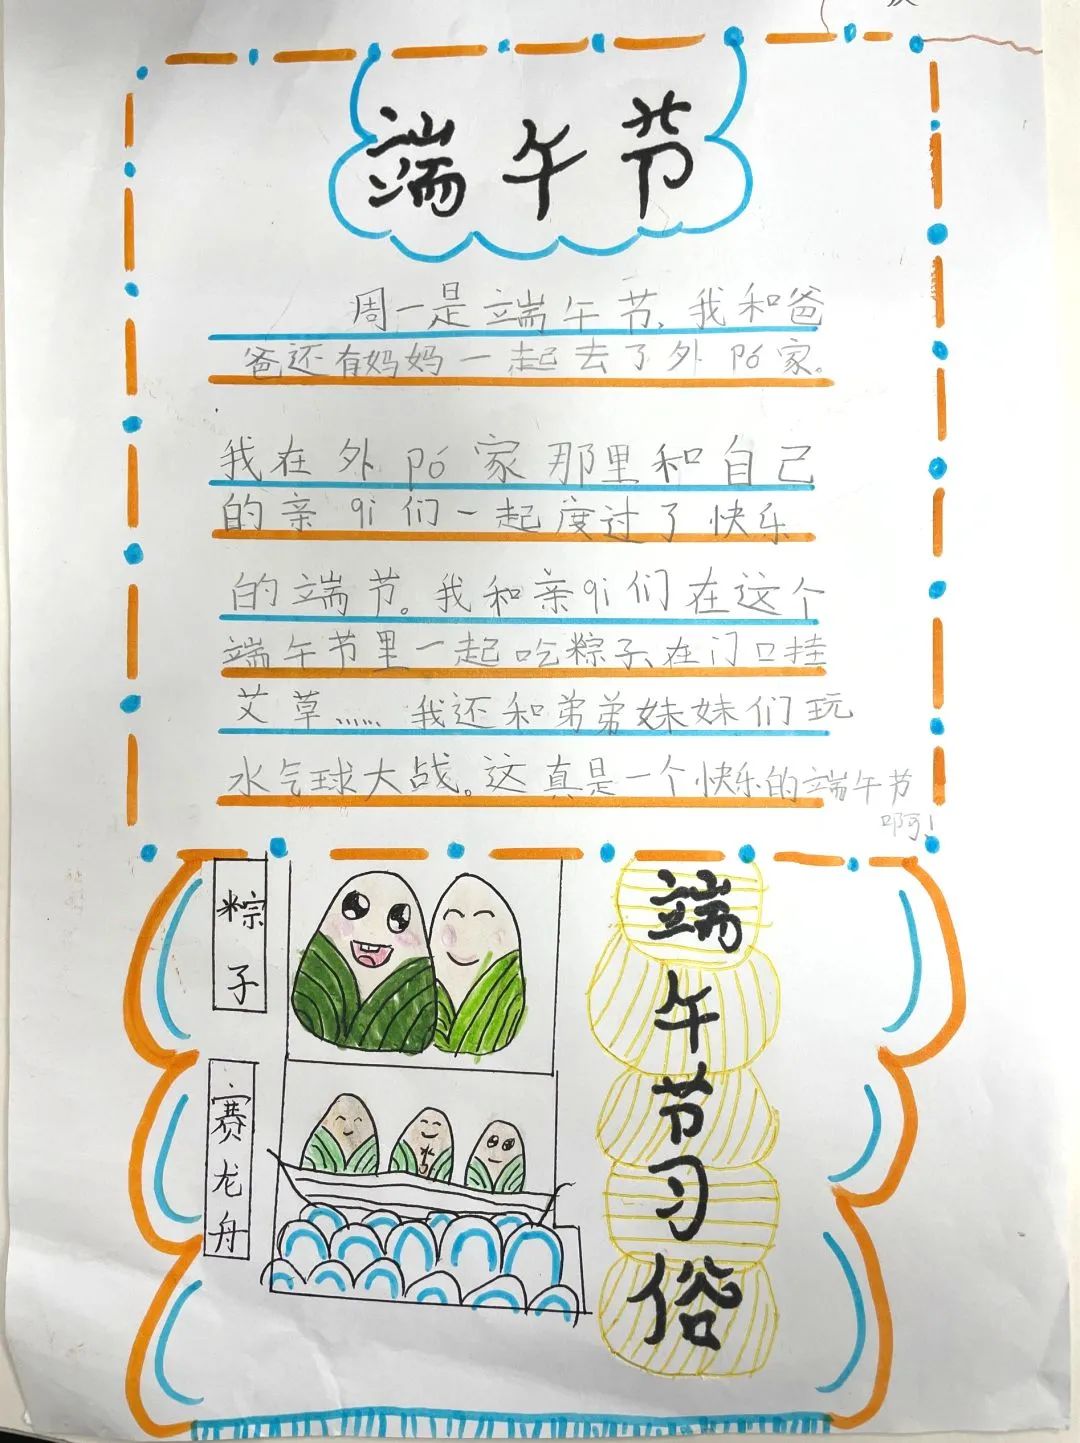 端午节
周一是端午节,我和爸
爸还有妈妈一起去了外pó家。
我在外pó家那里和自己
的亲qi们一起度过了快乐
的端节。我和亲qi们在这个
端午节里一起吃粽子、在门口挂
艾草……我还和弟弟妹妹们玩
水气球大战。这真是一个快乐的端午节
啊!
粽子
赛龙舟
端午节习俗